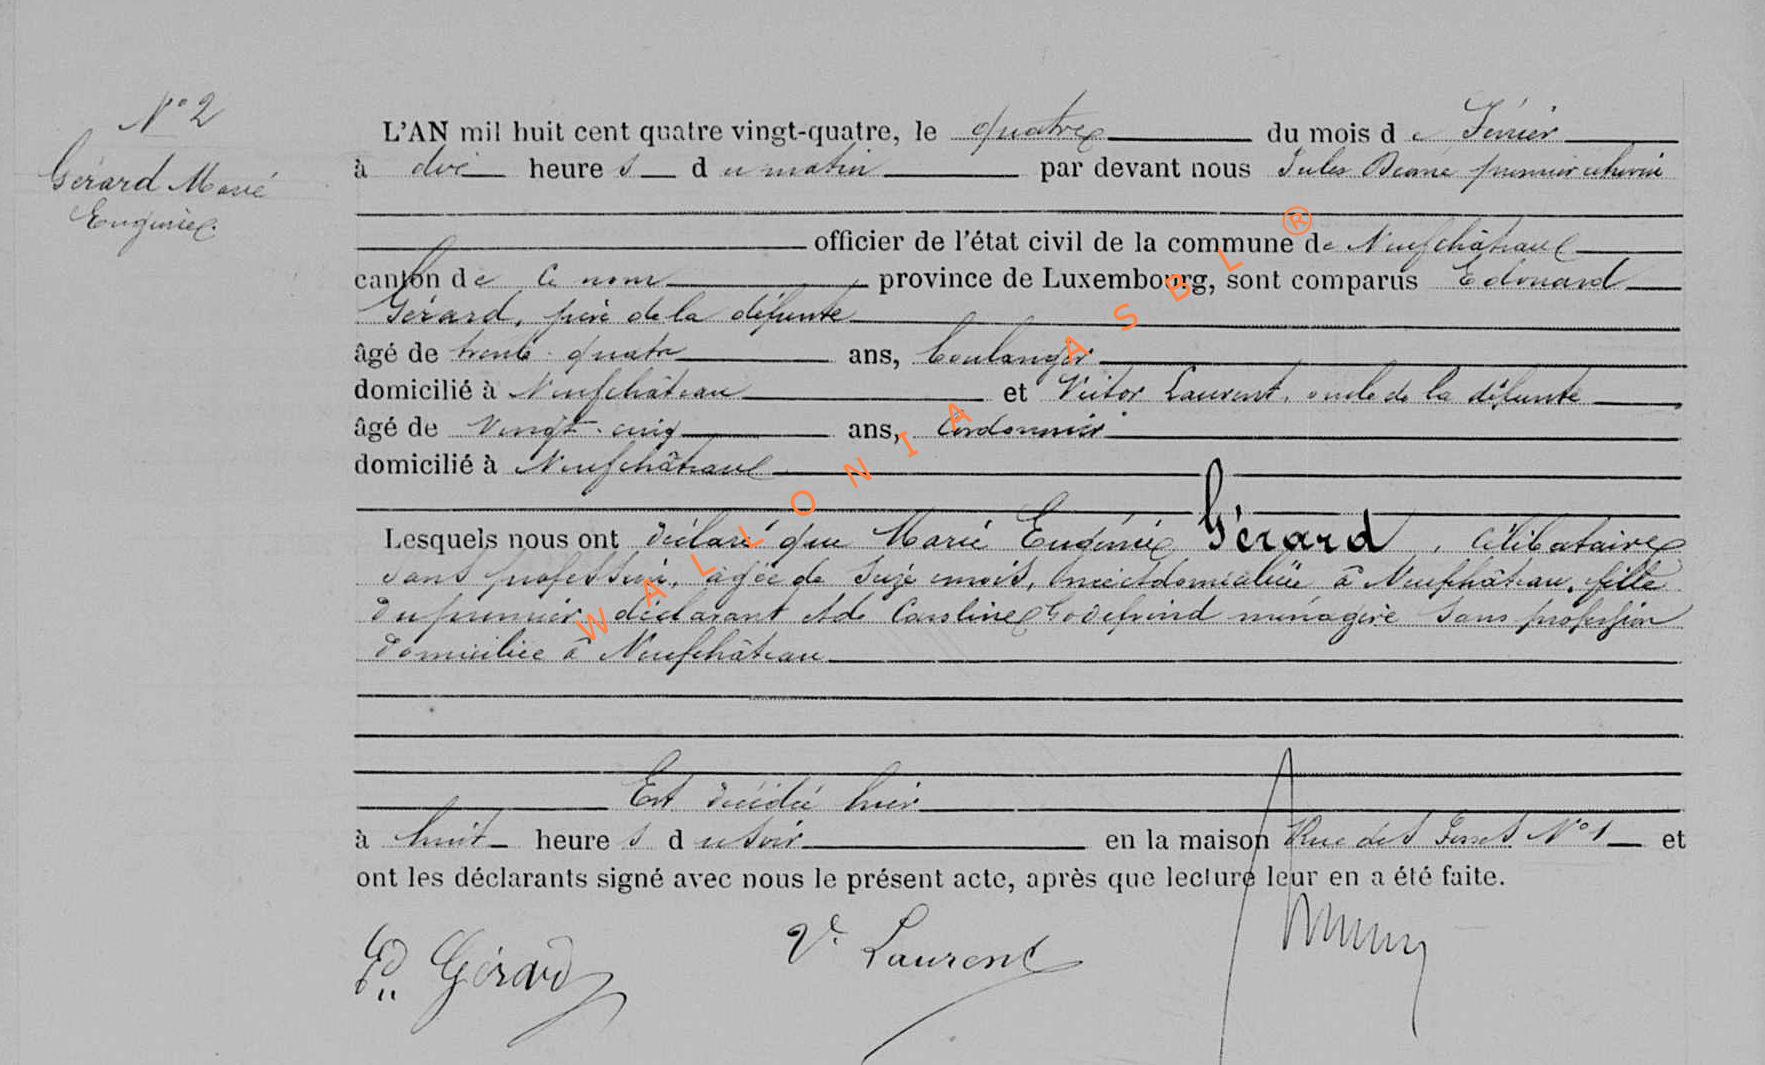 N° 2
Gérard Marie
Eugénie
L'AN mil huit cent quatre vingt-quatre, le quatre du mois de
à dix heures du matin par devant nous Jules premier échevin
officier de l'état civil de la commune de Neufchâteau
canton de ce nom province de Luxembourg, sont comparus Edouard
Gérard, père de la défunte
âgé de trente-quatre ans, boulanger
domicilié à Neufchâteau et Victor Laurent, oncle de la défunte
âgé de vingt-cinq ans, cordonnier
domicilié à Neufchâteau
Lesquels nous ont déclaré que Marie Eugénie Gérard, célibataire
sans profession, âgée de seize mois, née et domiciliée à Neufchâteau, fille
du premier déclarant et de Caroline Godefroid ménagère sans profession
domiciliée à Neufchâteau
Est décédée hier
à huit heures du soir en la maison Rue des N° 1 et
ont les déclarants signé avec nous le présent acte, après que lecture leur en a été faite.
Ed. Gérard V. Laurent
WALLONIA ASBL ®